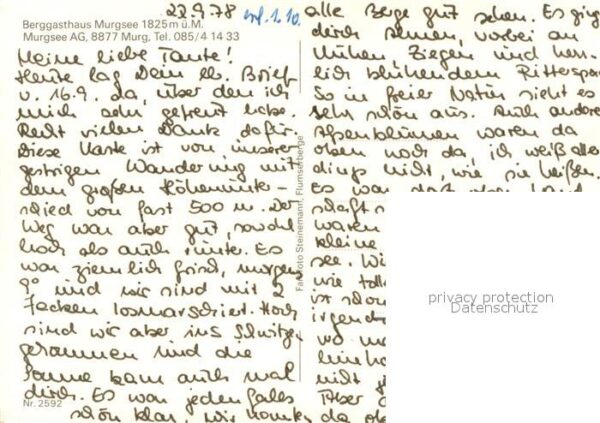 22.9.78 erf. 1.10.
Berggasthaus Murgsee 1825 m ü.M.
Murgsee AG, 8877 Murg, Tel. 085/4 14 33
Meine liebe Tante!
Heute lag Dein lb. Brief
v. 16.9. da, über den ich
mich sehr gefreut habe.
Recht vielen Dank dafür.
Diese Karte ist von unserer
gestrigen Wanderung mit
dem großen Höhenunter-
schied von fast 500 m. Der
Weg war aber gut, sowohl
hoch als auch runter. Es
war ziemlich frisch, morgens
9° und wir sind mit 2
Jacken losmarschiert. Hoch
sind wir aber ins Schwitzen
gekommen und die
Sonne kam auch mal
durch. Es war jedenfalls
schön klar, wir konnten
alle Berge gut sehen. Es ging
durch Almen, vorbei an
Kühen, Ziegen und herr-
lich blühendem Rittersporn
So in freier Natur sieht es
sehr schön aus. Auch andere
Alpenblumen waren da
oben noch da, ich weiß aller
dings nicht, wie sie heißen.
Es war dort oben
waren
kleine
see. Wi
wie tol
ist schon
irgend
wo
nicht
Aber
da ob
Farbfoto Steinemann, Flumserberge
Nr. 2592
privacy protection
Datenschutz